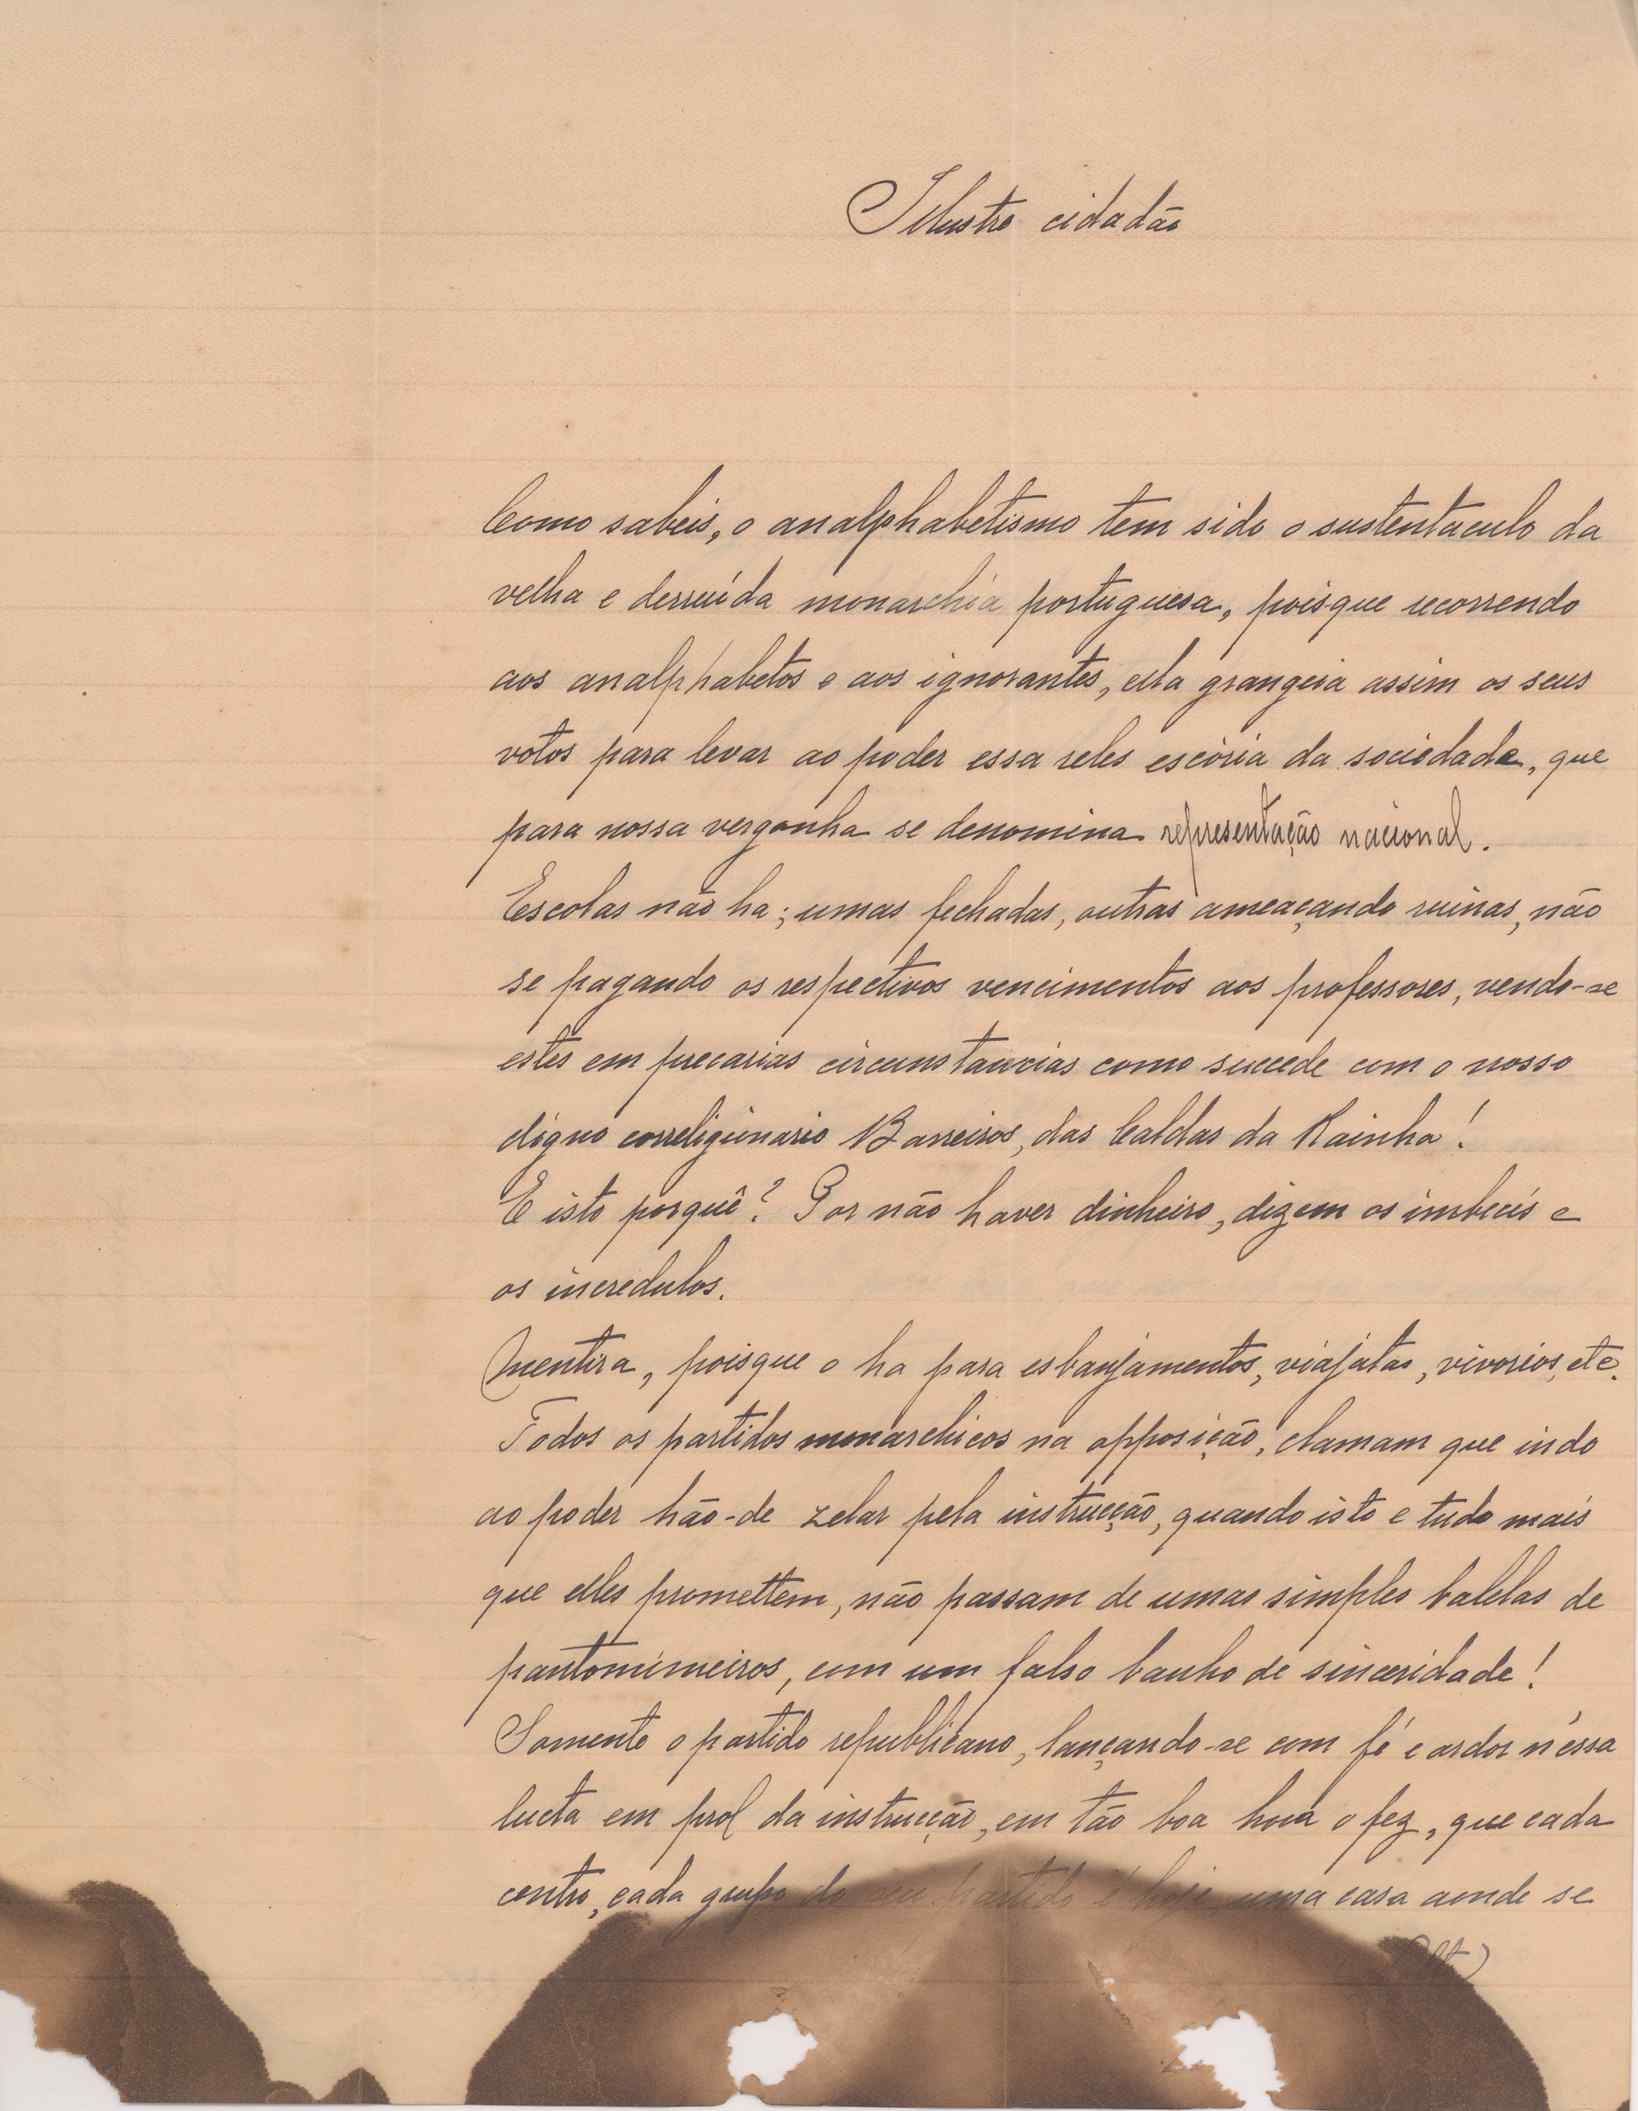 Illustre cidadão
Como sabeis, o analphabetismo tem sido o sustentaculo da
velha e derruída monarchia portuguesa, poisque recorrendo
aos analphabetos e aos ignorantes, ella grangeia assim os seus
votos para levar ao poder essa reles escória da sociedade, que
para nossa vergonha se denomina representação nacional.
Escolas não ha; umas fechadas, outras ameaçando ruinas, não
se pagando os respectivos vencimentos aos professores, vendo-se
estes em precarias circunstancias como succede com o nosso
digno correligionario Barreiros, das Caldas da Rainha!
E isto porquê? Por não haver dinheiro, dizem os imbecis e
os incredulos.
Mentira, poisque o ha para esbanjamentos, viajatas, vivorios, etc.
Todos os partidos monarchicos na opposição, clamam que indo
ao poder hão-de zelar pela instrucção, quando isto e tudo mais
que elles promettem, não passam de umas simples balelas de
pantomimeiros, com um falso banho de sinceridade!
Somente o partido republicano, lançando-se com fé e ardor n'essa
lucta em prol da instrucção, em tão boa hora o fez, que cada
centro, cada grupo do seu partido é hoje uma casa aonde se